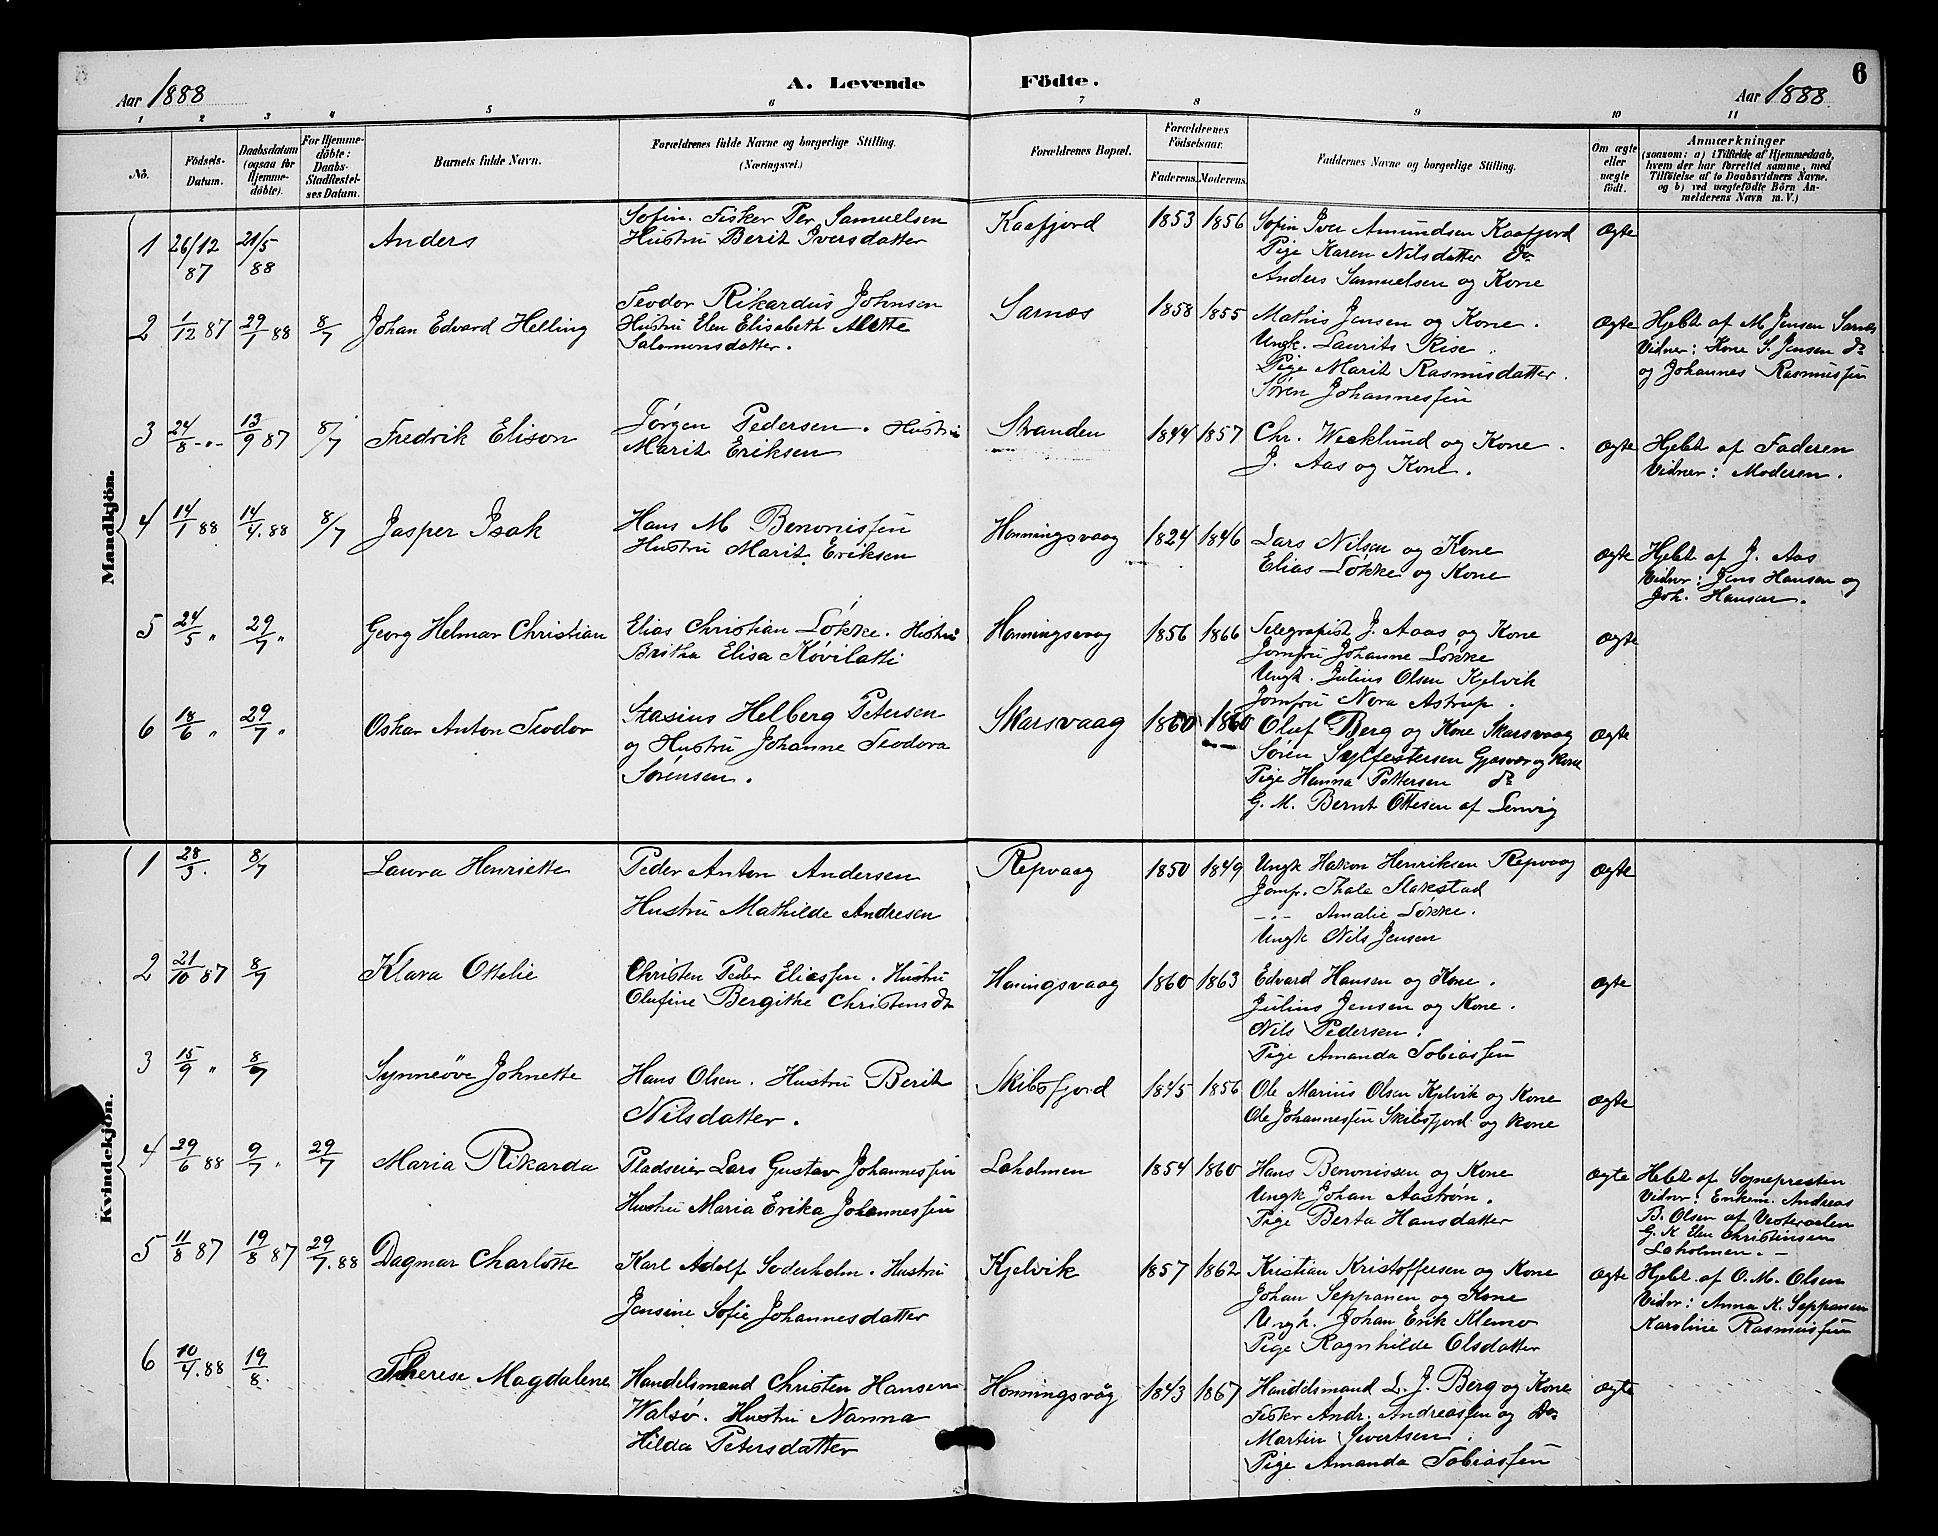 6
Aar 1888
A. Levende Födte.
Aar 1888
1 2 3 4 5 6 7 8 9 10 11
Nô.
Födsels-Datum.
Daabsdatum (ogsaa for Hjemme-döbte).
For Hjemme-döbte: Daabs-Stadfæstel-ses Datum.
Barnets fulde Navn.
Forældrenes fulde Navne og borgerlige Stilling.
(Næringsvei.)
Forældrenes Bopæl.
Forældrenes Födselsaar.
Faderens. Moderens.
Faddernes Navne og borgerlige Stilling.
Om ægte eller uægte födt.
Anmærkninger
(saasom: a) i Tilfælde af Hjemmedaab,
hvem der har forrettet samme, med
Tilföielse af to Daabsvidners Navne.
og b) ved uægtefödte Börn An-
melderens Navn m.V.)
Mandkjön.
1 26/12 87 21/5 88 Anders
Sofin. Fisker Per Samuelsen
Hustru Berit Iversdatter
Kaafjord 1853 1856
Sofin Iver Amundsen Kaafjord
Pige Karen Nilsdatter do
Anders Samuelsen og Kone
Ægte
2 1/12 87 29/1 88 8/7 Johan Edvard Helling
Teodor Rikardus Johnsen
Hustru Elen Elisabeth Alette
Salomonsdatter.
Sarnæs 1858 1855
Mathis Jensen og Kone.
Ungk. Laurits Rise
Pige Marit Rasmusdatter.
Sören Johannessen
Ægte
Hjebt af M Jensen Sarnes
Vidner: Kone S. Jensen do
og Johannes Rasmussen
3 24/8 -"- 13/9 87 8/7 Fredrik Elison
Jörgen Pedersen. Hustru
Marit Eriksen
Stranden 1844 1857
Chr. Wecklund og Kone.
J. Aas og Kone.
Ægte
Hjebt af Faderen
Vidner: Moderen.
4 14/1 88 14/4. 88 8/7 Jasper Isak
Hans M Benonissen
Hustru Marit Eriksen
Honningsvaag 1824 1846
Lars Nilsen og Kone
Elias Løkke og Kone
Ægte
Hjebt af J. Aas
Vidnr: Jens Hansen og
Joh. Hansen.
5 24/5 " 29/7 " Georg Helmar Christian
Elias Christian Løkke. Hustru
Britha Elisa Kövilatti
Honningsvaag 1856 1866
Telegrafist J. Aaas og Kone
Jomfru Johanne Løkke
Ungk. Julius Olsen Kjelvik
Jomfru Nora Astrup.
Ægte
6 18/6 " 29/7 " Oskar Anton Teodor
Stasius Helberg Petersen
og Hustru Johanne Teodora
Sørensen.
Skarsvaag 1860 1860
Oluf Berg og Kone Skarsvaag
Søren Sylfestersen Gjæsvær og Kone
Pige Hanna Pettersen do
G. M. Bernt Ottesen af Lenvig
Ægte
Kvindekjön.
1 28/3. 8/7 Laura Henriette
Peder Anton Andersen
Hustru Mathilde Andresen
Repvaag 1850 1849
Ungk Hakon Henriksen Repvaag
Jomf. Thale Flakstad
-"- Amalie Løkke.
Ungk Nils Jensen
Ægte
2 21/10 87 8/7 Klara Ottelie
Christen Peder Eliassen. Hustru
Olufine Bergithe Christensdr
Honingsvaag 1860 1863
Edvard Hansen og Kone.
Julius Jensen og Kone.
Nils Pedersen.
Pige Amanda Tobiassen
Ægte
3 15/9 " 8/7 Synneöve Johnette
Hans Olsen. Hustru Berit
Nilsdatter.
Skibsfjord 1845 1856
Ole Marius Olsen Kjelvik og Kone
Ole Johannessen Skibsfjord og Kone
Ægte
4 29/6 88 9/7 " 29/7 Maria Rikarda
Pladseier Lars Gustav Johannessen
Hustru Maria Erika Johannessen
Loholmen 1854 1860
Hans Benonissen og Kone
Ungk Johan Aastrøm.
Pige Berta Hansdatter
Ægte
Hebt af Sognepresten
Vidnr: Enkem. Andreas
B. Olsen af Vesteraalen
G. K Elen Christensen
Loholmen. -
5 11/8 87 19/8 87 29/7. 88 Dagmar Charlotte
Karl Adolf Soderholm. Hustru
Jensine Sofie Johannesdatter
Kjelvik 1857 1862
Kristian Kristoffersen og Kone
Johan Seppanen og Kone
Ungk. Johan Erik Klemo
Pige Ragnhilde Olsdatter
Ægte
Hjebt. af O. M. Olsen
Vidnr: Anna K. Seppanen
Karoline Rasmussen
6 10/4. 88 19/8. Therese Magdalene
Handelsmand Christen Hansen
Walsö. Hustru Nanna
Hilda Petersdatter
Honningsvåg 1843 1867
Handelsmand L. J. Berg og Kone
Fisker Andr. Andreassen og Do
Martin Sivertsen.
Pige Amanda Tobiassen
Ægte